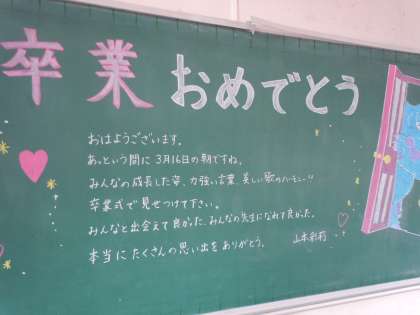 卒業おめでとう
おはようございます。
あっという間に3月16日の朝ですね。
みんなの成長した姿、力強い言葉、美しい歌のハーモニー!!
卒業式で見せつけて下さい。
みんなと出会えて良かった、みんなの先生になれて良かった。
本当にたくさんの思い出をありがとう。
山本